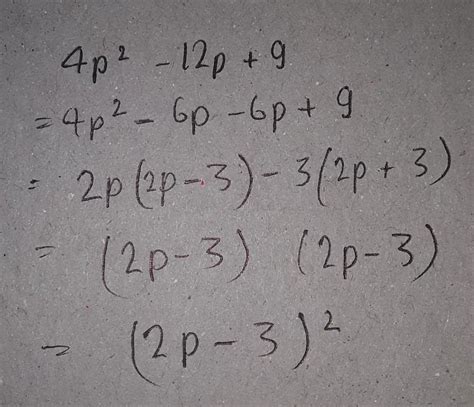 4p² - 12p + 9
= 4p² - 6p - 6p + 9
= 2p(2p - 3) - 3(2p + 3)
= (2p - 3) (2p - 3)
= (2p - 3)²